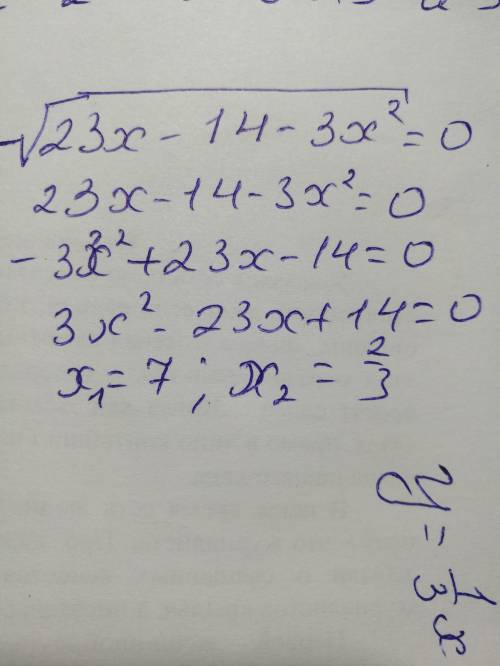 -√(23x - 14 - 3x²) = 0
23x - 14 - 3x² = 0
- 3x² + 23x - 14 = 0
3x² - 23x + 14 = 0
x₁ = 7 ; x₂ = 2/3
y = 1/3 x